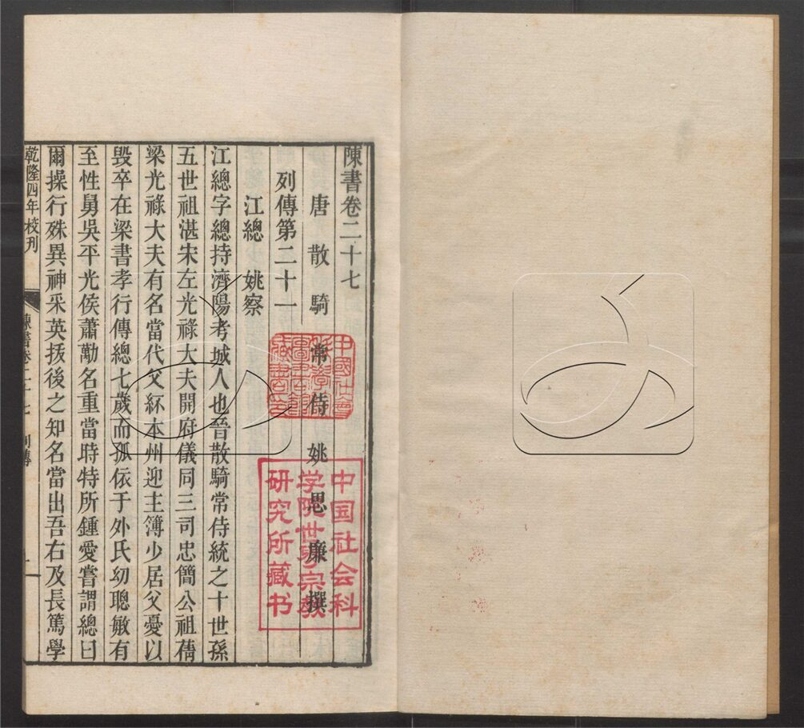 陳書卷二十七
唐散騎常侍姚思廉撰
列傳第二十一
江總 姚察
江總字總持濟陽考城人也晉散騎常侍統之十世孫
五世祖湛宋左光祿大夫開府儀同三司忠簡公祖蒨
梁光祿大夫有名當代父紑本州迎主簿少居父憂以
毀卒在梁書孝行傳總七歲而孤依于外氏幼聰敏有
至性舅吳平光侯蕭勱名重當時特所鍾愛嘗謂總曰
爾操行殊異神采英拔後之知名當出吾右及長篤學
乾隆四年校刊
陳書卷二十七 列傳
一
中国社会科
学院世界宗教
研究所藏书